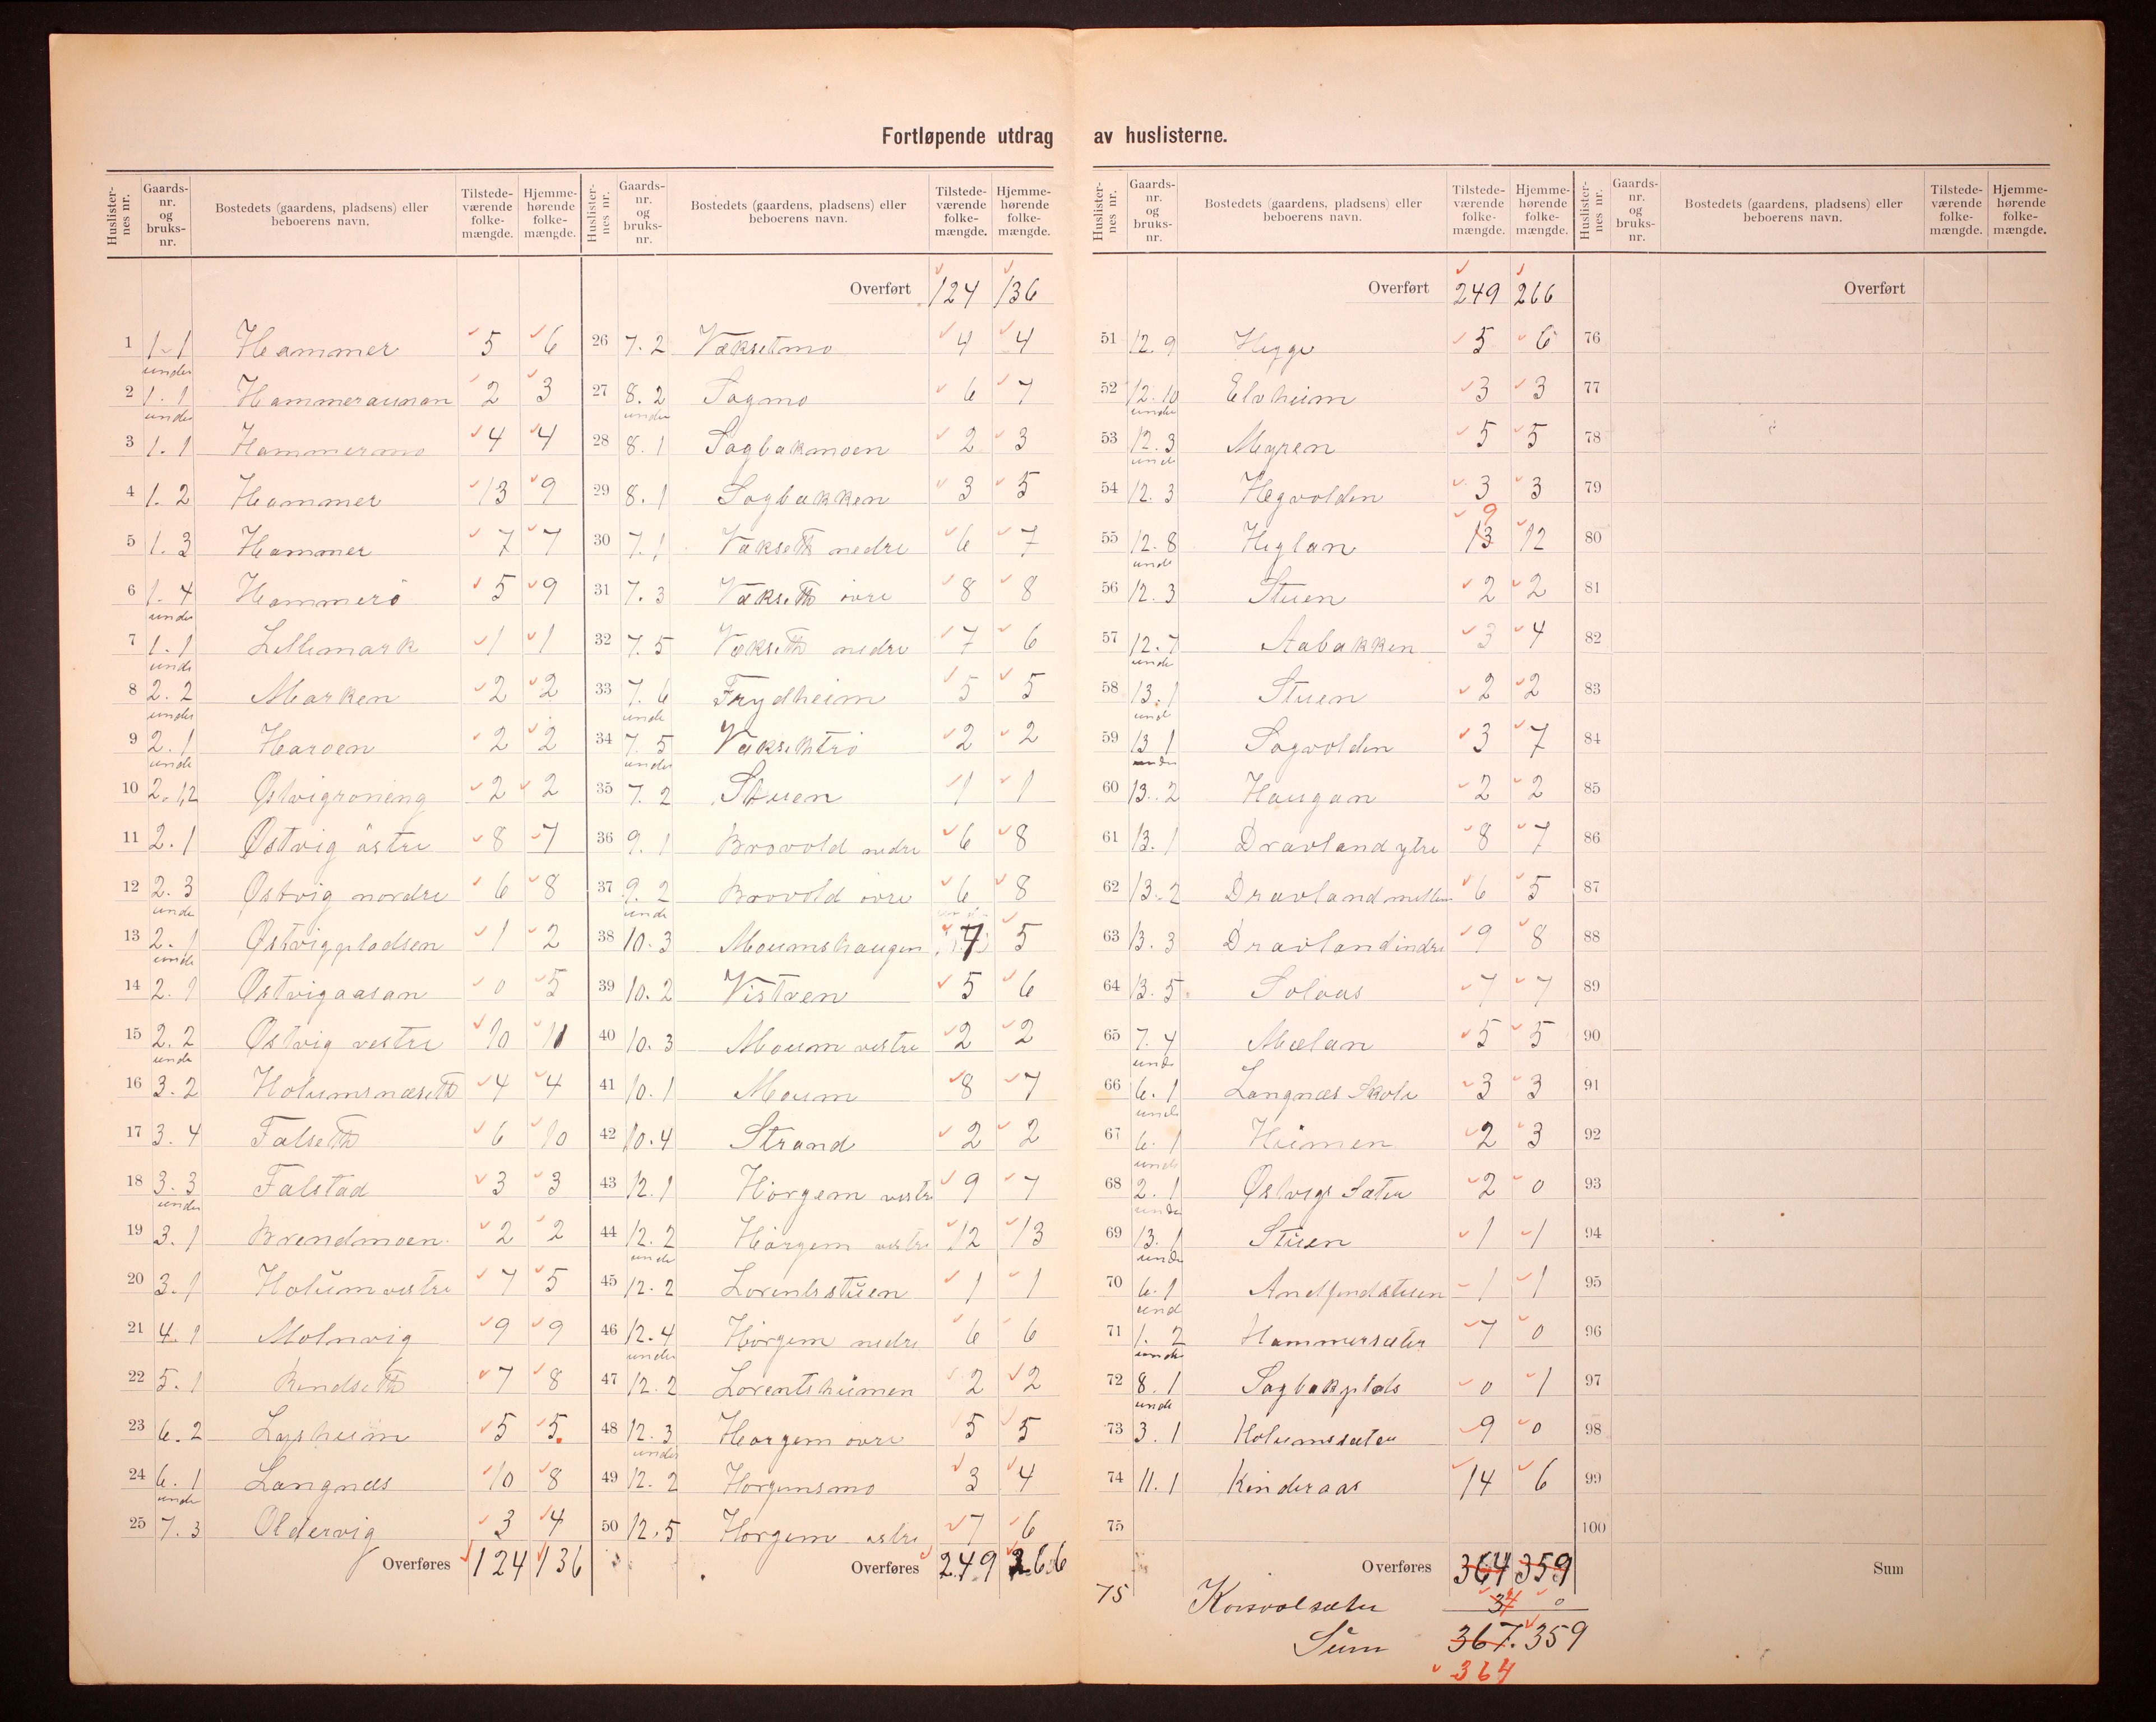 Fortløpende utdrag av huslisterne.
Huslister-nes nr. Gaards-nr. og bruks-nr. Bostedets (gaardens, pladsens) eller beboerens navn. Tilstede-værende folke-mængde. Hjemme-hørende folke-mængde.
1 1.1 Hammer 5 6
under
2 1.1 Hammerauman 2 3
under
3 1.1 Hammermo 4 4
4 1.2 Hammer 13 9
5 1.3 Hammer 7 7
6 1.4 Hammerö 5 9
under
7 1.1 Lillemark 1 1
unde
8 2.2 Marken 2 2
under
9 2.1 Haroen 2 2
unde
10 2.12 Østvigröneng 2 2
11 2.1 Østvig östre 8 7
12 2.3 Østvig nordre 6 8
unde
13 2.1 Østvigpladsen 1 2
unde
14 2.1 Østvigaasan 0 5
15 2.2 Østvig vestre 10 11
unde
16 3.2 Holumsnæseth 4 4
17 3.4 Falseth 6 10
18 3.3 Falstad 3 3
under
19 3.1 Brendmoen 2 2
20 3.1 Holum vestre 7 5
21 4.1 Molnvig 9 9
22 5.1 Rindseth 7 8
23 6.2 Lysheim 5 5
24 6.1 Langnæs 10 8
unde
25 7.3 Oldervig 3 4
Overføres 124 136
Huslister-nes nr. Gaards-nr. og bruks-nr. Bostedets (gaardens, pladsens) eller beboerens navn. Tilstede-værende folke-mængde. Hjemme-hørende folke-mængde.
Overført 124 136
26 7.2 Væksetmo 4 4
27 8.2 Sagmo 6 7
under
28 8.1 Sagbakmoen 2 3
29 8.1 Sagbakken 3 5
30 7.1 Vækseth nedre 6 7
31 7.3 Vækseth övre 8 8
32 7.5 Vækseth nedre 7 6
33 7.6 Frydheim 5 5
unde
34 7.5 Væksethtrö 2 2
under
35 7.2 Stuen 1 1
36 9.1 Brovold nedre 6 8
37 9.2 Brovold övre 6 8
unde
38 10.3 Moumshaugen 7 5
39 10.2 Vistven 5 6
40 10.3 Moum vestre 2 2
41 10.1 Moum 8 7
42 10.4 Strand 2 2
43 12.1 Hörgem vestre 9 7
44 12.2 Hörgem vestre 12 13
unde
45 12.2 Lorentsstuen 1 1
46 12.4 Hörgem nedre 6 6
under
47 12.2 Lorentsheimen 2 2
48 12.3 Hörgem övre 5 5
under
49 12.2 Hörgemsmo 3 4
50 12.5 Hörgem östre 7 6
Overføres 249 266
Huslister-nes nr. Gaards-nr. og bruks-nr. Bostedets (gaardens, pladsens) eller beboerens navn. Tilstede-værende folke-mængde. Hjemme-hørende folke-mængde.
Overført 249 266
51 12.9 Hegge 5 6
52 12.10 Elvheim 3 3
unde
53 12.3 Myren 5 5
unde
54 12.3 Hegvolden 3 3
9
55 12.8 Heglan 13 12
unde
56 12.3 Stuen 2 2
57 12.7 Aabakken 3 4
unde
58 13.1 Stuen 2 2
und
59 13.1 Sagvolden 3 7
under
60 13.2 Haugan 2 2
61 13.1 Dravland ytre 8 7
62 13.2 Dravland mellem 6 5
63 13.3 Dravland indre 9 8
64 13.5 Solaas 7 7
65 7.4 Melan 5 5
unde
66 6.1 Langnæs Skole 3 3
unde
67 6.1 Heimen 2 3
unde
68 2.1 Østvigs Sæter 2 0
unde
69 13.1 Stuen 1 1
unde
70 6.1 1 1
und
71 1.2 Hammersæter 7 0
unde
72 8.1 Sagbakplads 0 1
unde
73 3.1 Holumssæter 9 0
74 11.1 Kinderaas 14 6
75
Overføres 364 359
75 34 0
Sum 367. 359
364
Huslister-nes nr. Gaards-nr. og bruks-nr. Bostedets (gaardens, pladsens) eller beboerens navn. Tilstede-værende folke-mængde. Hjemme-hørende folke-mængde.
Overført
76
77
78
79
80
81
82
83
84
85
86
87
88
89
90
91
92
93
94
95
96
97
98
99
100
Sum